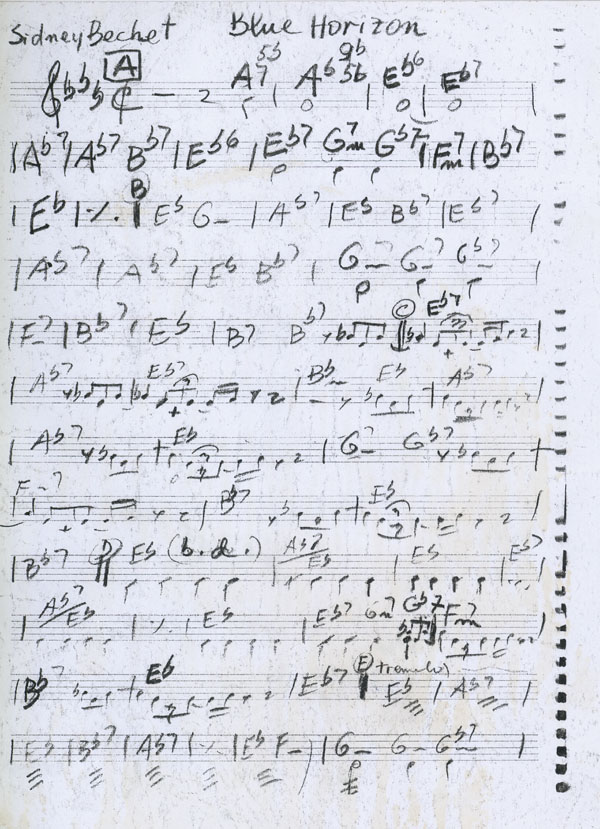 Sidney Bechet Blue Horizon
A
A7 5b | Ab 9b 5b | Eb6 | Eb7 |
| Ab7 | Ab7 Bb7 | Eb6 | Eb7 G7m Gb7 | F7m | Bb7
| Eb | ٪ B | Eb G- | Ab7 | Eb Bb7 | Eb7 |
| Ab7 | Ab7 | Eb Bb7 | G-7 G-7 Gb7
| F-7 | Bb7 | Eb | B7 Bb7 C Eb7 |
| Ab7 Eb7 | Bb- Eb Ab7
| Ab7 Eb | G- Gb7
F-7 | Bb7 Eb
| Bb7 D Eb (b.d.) | Ab7/Eb | Eb | Eb7
| Ab7/Eb | ٪ | Eb | Eb7 G7m Gb7 F7m
| Bb7 Eb | Eb7 E tremolo Eb | Ab7 |
| Eb | Bb7 | Ab7 | ٪ | Eb F- | G- G- Gb7 |